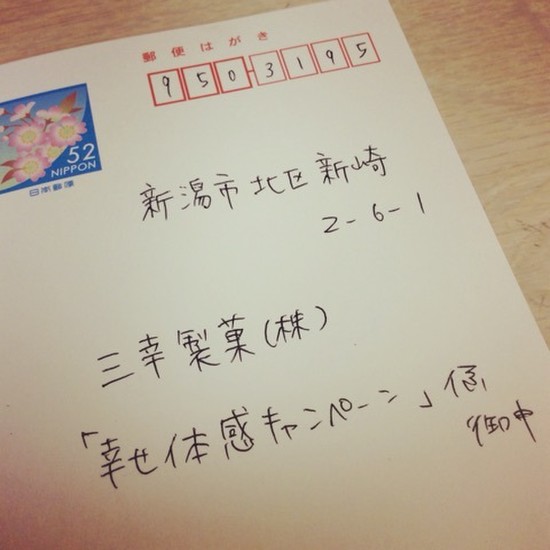 郵便はがき
950-3195
52
NIPPON
日本郵便
新潟市北区新崎
2-6-1
三幸製菓(株)
「幸せ体感キャンペーン」係
御中